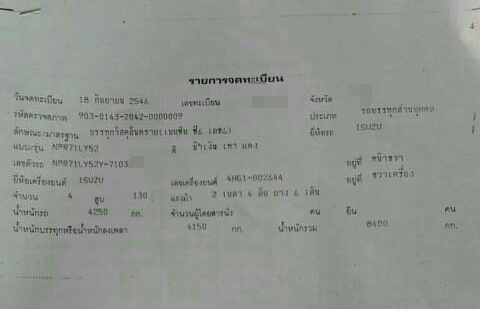 4
รายการจดทะเบียน
วันจดทะเบียน 18 กันยายน 2546 เลขทะเบียน จังหวัด
รหัสตรวจสภาพ 903-0143-2042-0000009 ประเภท รถบรรทุกส่วนบุคคล
ลักษณะ/มาตรฐาน บรรทุกวัสดุอันตราย ยี่ห้อรถ ISUZU
แบบ/รุ่น NPR71LY52 สี น้ำเงิน เทา แดง
เลขตัวรถ NPR71LY52Y-7103 อยู่ที่ หน้าขวา
ยี่ห้อเครื่องยนต์ ISUZU เลขเครื่องยนต์ 4HG1-002644 อยู่ที่ ขวาเครื่อง
จำนวน 4 สูบ 130 แรงม้า 2 เพลา 4 ล้อ ยาง 6 เส้น
น้ำหนักรถ 4250 กก. จำนวนผู้โดยสารนั่ง คน ยืน คน
น้ำหนักบรรทุกหรือน้ำหนักลงเพลา 4150 กก. น้ำหนักรวม 8400 กก.